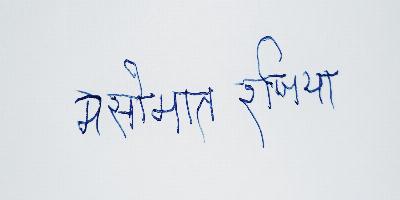 मसोमात रजिया